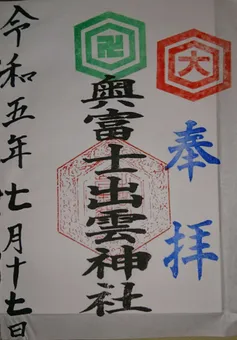 奉拝
大
卍
奥富士出雲神社
令和五年七月十七日